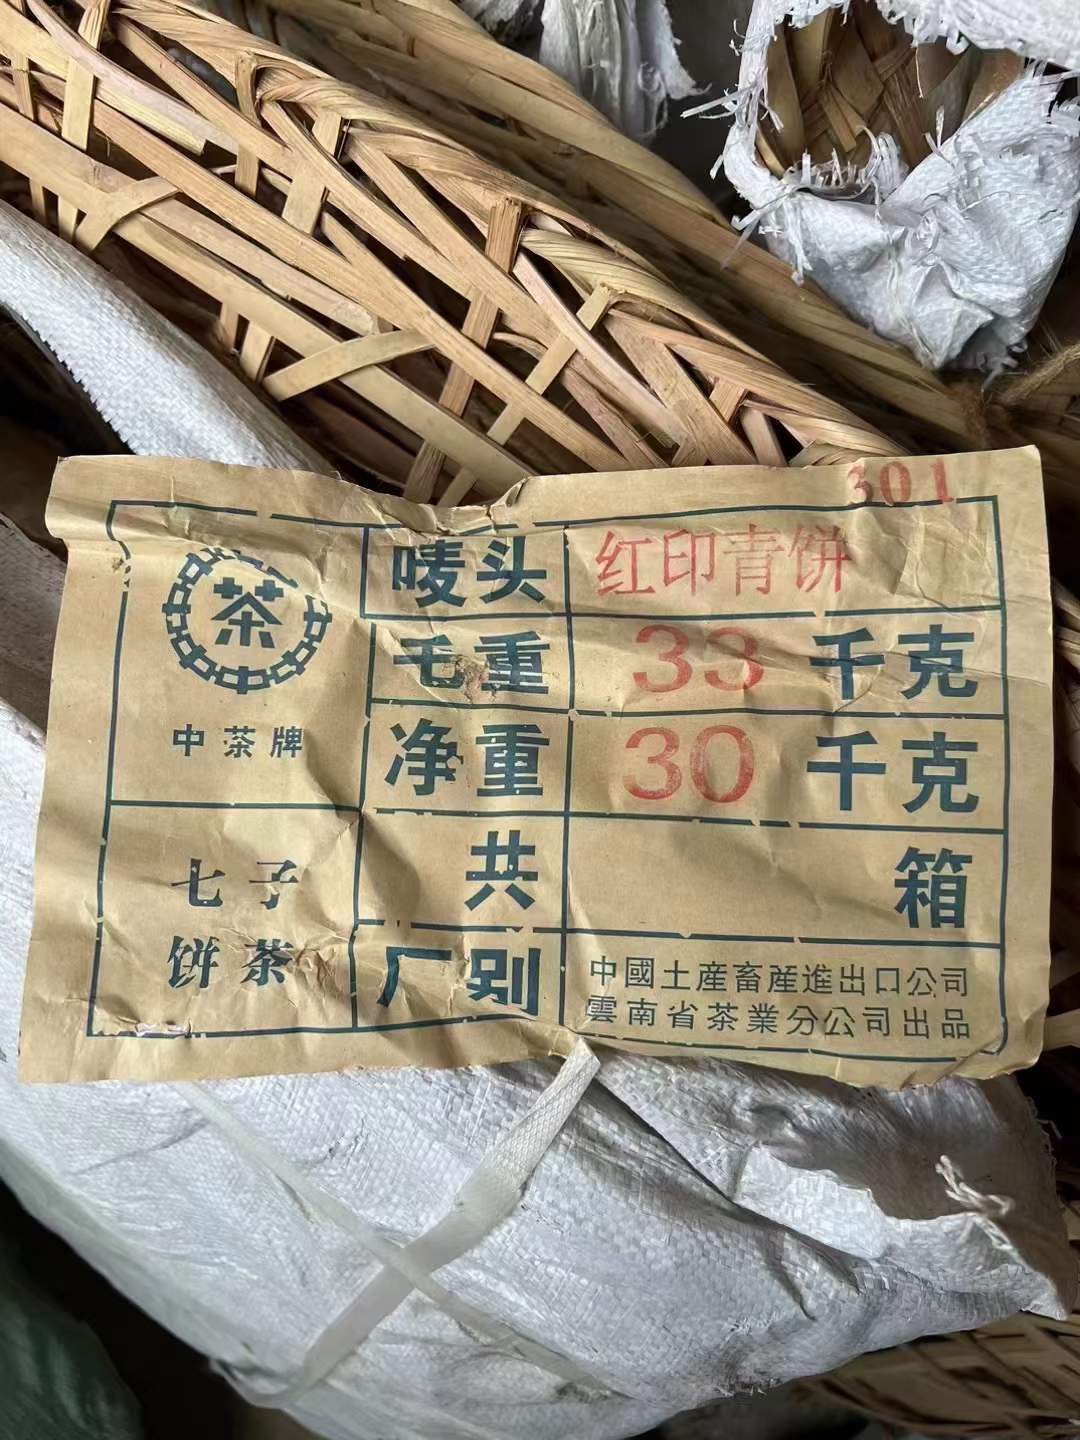 301
茶
中茶牌
七子
饼茶
唛头 红印青饼
毛重 33 千克
净重 30 千克
共 箱
厂别 中國土産畜産進出口公司
雲南省茶業分公司出品